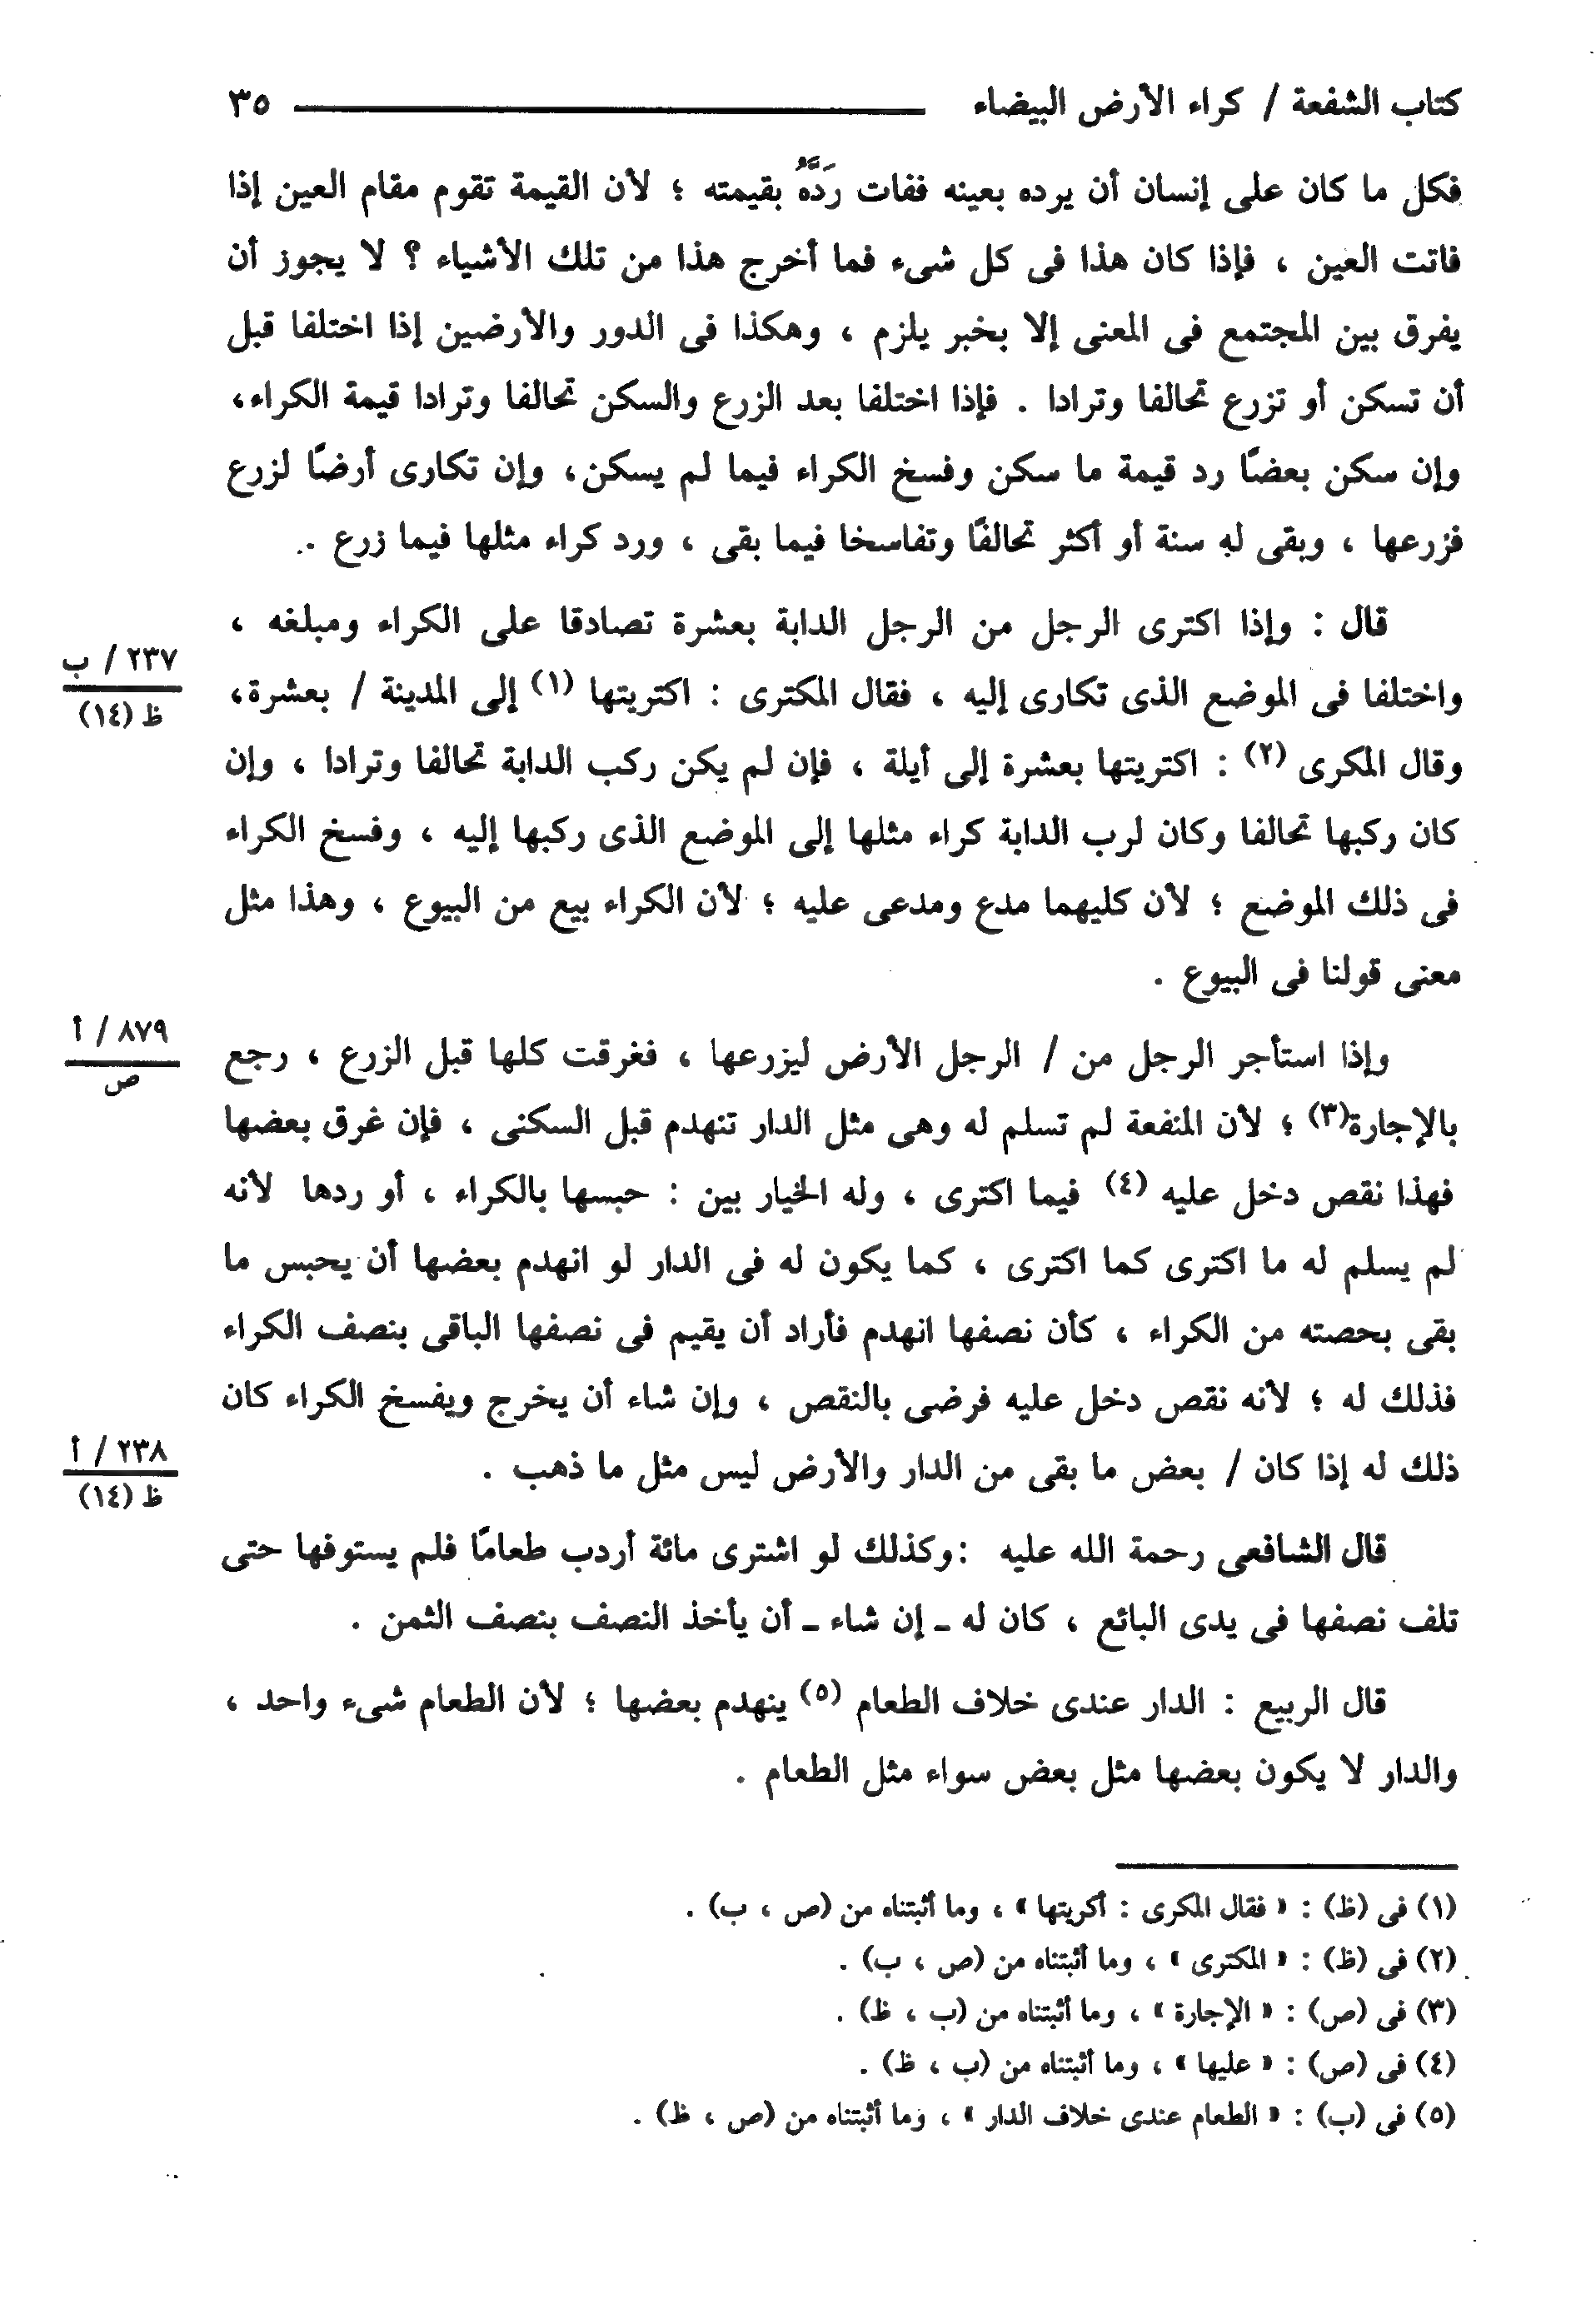 كتاب الشفعة / كراء الأرض البيضاء ٣٥
فكل ما كان على إنسان أن يرده بعينه ففات رَدَّهُ بقيمته ؛ لأن القيمة تقوم مقام العين إذا
فاتت العين ، فإذا كان هذا فى كل شىء فما أخرج هذا من تلك الأشياء ؟ لا يجوز أن
يفرق بين المجتمع فى المعنى إلا بخبر يلزم ، وهكذا فى الدور والأرضين إذا اختلفا قبل
أن تسكن أو تزرع تحالفا وترادا . فإذا اختلفا بعد الزرع والسكن تحالفا وترادا قيمة الكراء،
وإن سكن بعضًا رد قيمة ما سكن وفسخ الكراء فيما لم يسكن، وإن تكارى أرضًا لزرع
فزرعها ، وبقى له سنة أو أكثر تحالفًا وتفاسخا فيما بقى ، ورد كراء مثلها فيما زرع .
قال : وإذا اكترى الرجل من الرجل الدابة بعشرة تصادقا على الكراء ومبلغه ،
٢٣٧ / ب
ظ (١٤)
واختلفا فى الموضع الذى تكارى إليه ، فقال المكترى : اكتريتها (١) إلى المدينة / بعشرة،
وقال المكرى (٢) : اكتريتها بعشرة إلى أيلة ، فإن لم يكن ركب الدابة تحالفا وترادا ، وإن
كان ركبها تحالفا وكان لرب الدابة كراء مثلها إلى الموضع الذى ركبها إليه ، وفسخ الكراء
فى ذلك الموضع ؛ لأن كليهما مدع ومدعى عليه ؛ لأن الكراء بيع من البيوع ، وهذا مثل
معنى قولنا فى البيوع .
وإذا استأجر الرجل من / الرجل الأرض ليزرعها ، فغرقت كلها قبل الزرع ، رجع
٨٧٩ / أ
ص
بالإجارة(٣) ؛ لأن المنفعة لم تسلم له وهى مثل الدار تنهدم قبل السكنى ، فإن غرق بعضها
فهذا نقص دخل عليه (٤) فيما اكترى ، وله الخيار بين : حبسها بالكراء ، أو ردها لأنه
لم يسلم له ما اكترى كما اكترى ، كما يكون له فى الدار لو انهدم بعضها أن يحبس ما
بقى بحصته من الكراء ، كأن نصفها انهدم فأراد أن يقيم فى نصفها الباقى بنصف الكراء
فذلك له ؛ لأنه نقص دخل عليه فرضى بالنقص ، وإن شاء أن يخرج ويفسخ الكراء كان
ذلك له إذا كان / بعض ما بقى من الدار والأرض ليس مثل ما ذهب .
٢٣٨ / أ
ظ (١٤)
قال الشافعى رحمة الله عليه :وكذلك لو اشترى مائة أردب طعامًا فلم يستوفها حتى
تلف نصفها فى يدى البائع ، كان له ـ إن شاء ـ أن يأخذ النصف بنصف الثمن .
قال الربيع : الدار عندى خلاف الطعام (٥) ينهدم بعضها ؛ لأن الطعام شىء واحد ،
والدار لا يكون بعضها مثل بعض سواء مثل الطعام .
(١) فى (ظ) : « فقال المكرى : أكريتها » ، وما أثبتناه من (ص ، ب) .
(٢) فى (ظ) : « المكترى » ، وما أثبتناه من (ص ، ب) .
(٣) فى (ص) : « الإجارة » ، وما أثبتناه من (ب ، ظ) .
(٤) فى (ص) : « عليها » ، وما أثبتناه من (ب ، ظ) .
(٥) فى (ب) : « الطعام عندى خلاف الدار » ، وما أثبتناه من (ص ، ظ) .